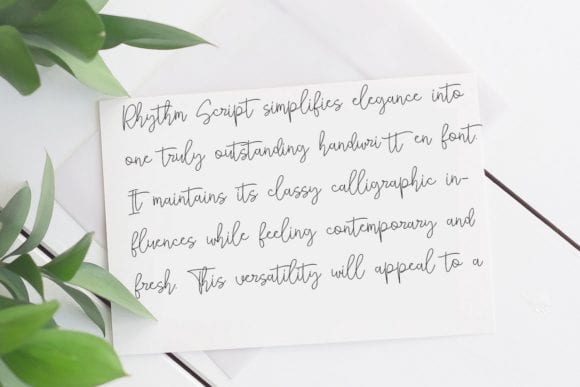 Rhythm Script simplifies elegance into
one truly outstanding handwritt en font.
It maintains its classy calligraphic in-
fluences while feeling contemporary and
fresh. This versatility will appeal to a